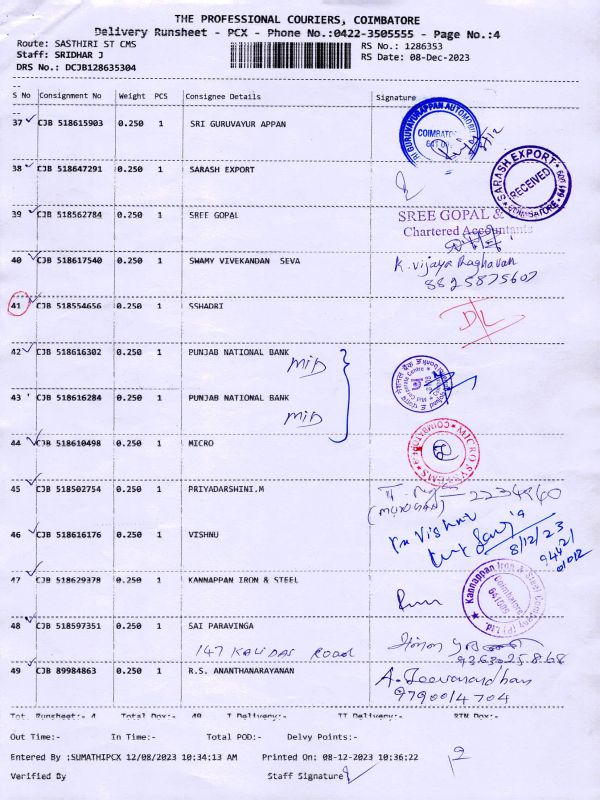 THE PROFESSIONAL COURIERS, COIMBATORE
Delivery Runsheet - PCX - Phone No.:0422-3505555 - Page No.:4
Route: SASTHIRI ST CMS RS No.: 1286353
Staff: SRIDHAR J RS Date: 08-Dec-2023
DRS No.: DCJB128635304
S No Consignment No Weight PCS Consignee Details Signature
37 CJB 518615903 0.250 1 SRI GURUVAYUR APPAN
COIMBATO
38 CJB 518647291 0.250 1 SARASH EXPORT
SARASH EXPORT
RECEIVED
COIMBATORE
39 CJB 518562784 0.250 1 SREE GOPAL
SREE GOPAL &
Chartered Accountants
40 CJB 518617540 0.250 1 SWAMY VIVEKANDAN SEVA
K. Vijaya Raghavan
8825875607
41 CJB 518554656 0.250 1 SSHADRI
D/L
42 CJB 518616302 0.250 1 PUNJAB NATIONAL BANK
MID
43 CJB 518616284 0.250 1 PUNJAB NATIONAL BANK
MID
44 CJB 518610498 0.250 1 MICRO
MICRO SYSTEMS
45 CJB 518502754 0.250 1 PRIYADARSHINI.M
2234960
(MURUGAN)
46 CJB 518616176 0.250 1 VISHNU
Vishnu
8/12/23
94421
01012
47 CJB 518629378 0.250 1 KANNAPPAN IRON & STEEL
Kannappan Iron & Steel Company (P) Ltd.
Coimbatore
48 CJB 518597351 0.250 1 SAI PARAVINGA
147 KALIDAS Road
9363025868
49 CJB 89984863 0.250 1 R.S. ANANTHANARAYANAN
A. Jeevanandhan
9790014704
Tot. Runsheet:- 4 Total Dox:- 49 I Delivery:- II Delivery:- RTN Dox:-
Out Time:- In Time:- Total POD:- Delvy Points:-
Entered By :SUMATHIPCX 12/08/2023 10:34:13 AM Printed On: 08-12-2023 10:36:22
Verified By Staff Signature